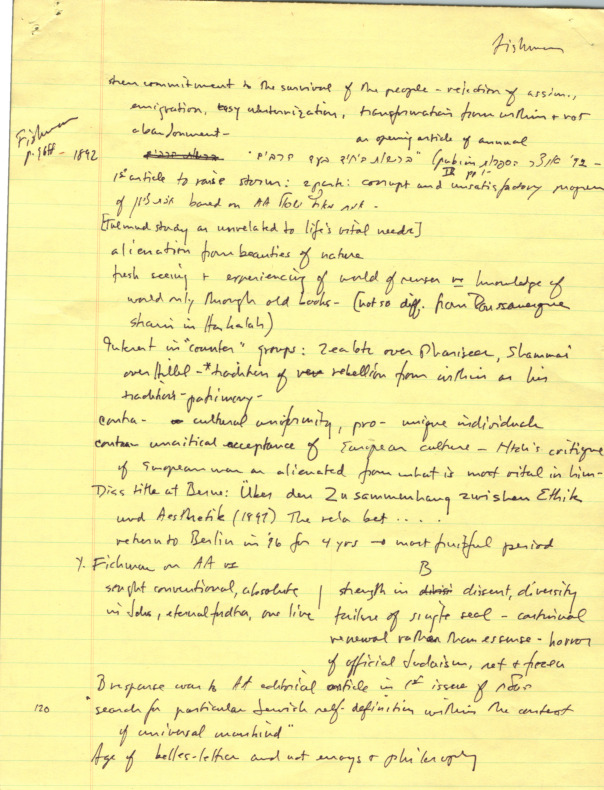 Fishman
commitment to the survival of the people – rejection of assim.,
emigration, easy westernization, transformation from within + not
abandonment –
an opening article of annual
Fishman
p. 96ff – 1892
1st article to raise storm: 2 parts: corrupt and unsatisfactory program
of based on AA
[Talmud study as unrelated to life's vital needs]
alienation from beauties of nature
fresh seeing + experiencing of world of senses vs knowledge of
world only through old books – (not so diff. from Rousseauesque
strain in Haskalah)
Interest in "counter" groups: Zealots over Pharisees, Shammai
over Hillel – "tradition of rebellion from within as his
tradition – patrimony –
contra – cultural uniformity, pro – unique individuals
contra uncritical acceptance of European culture – Ntzh's critique
of European man as alienated from what is most vital in him –
Diss title at Berne: Über den Zusammenhang zwischen Ethik
und Aesthetik (1897) The rela bet . . . .
return to Berlin in '96 for 4 yrs → most fruitful period
Y. Fichman on AA vs B
sought conventional, absolute
in Jdsm, eternal truths, one line
strength in dissent, diversity
failure of single seal – continual
renewal rather than essense – horror
of official Judaism, set + frozen
B response was to AA editorial article in 1st issue of
"search for particular Jewish self-definition within the context
120
of universal mankind"
Age of belles-lettres and not essays + philosophy